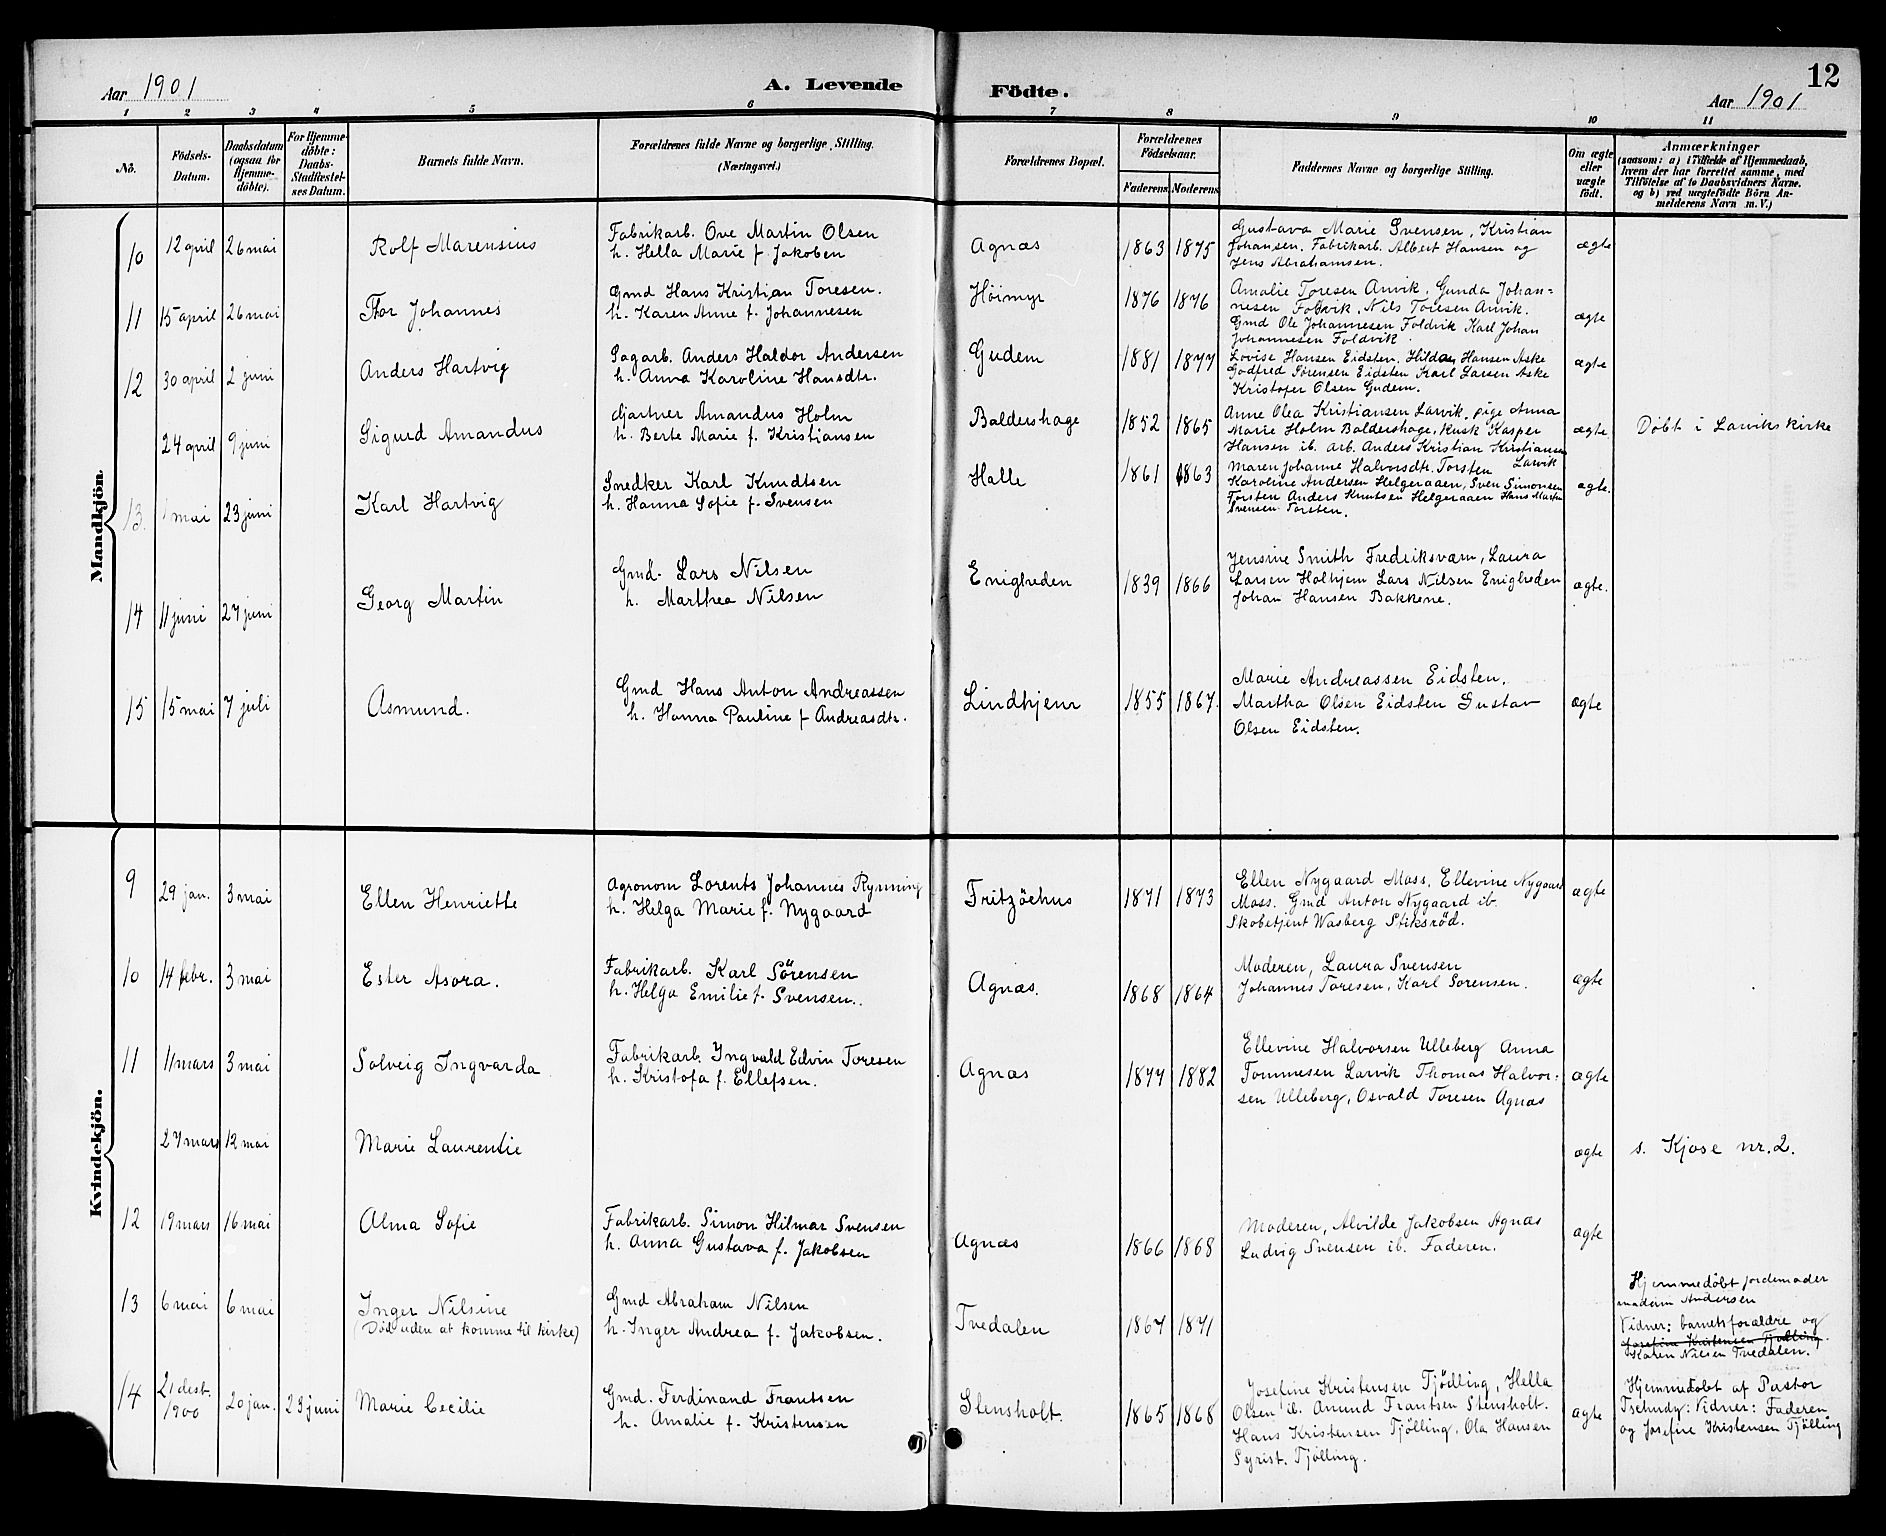 Aar 1901
A. Levende
Födte.
12
Aar 1901
1 2 3 4 5 6 7 8 9 10 11
No.
Födsels-
Datum.
Daabsdatum
(ogsaa for
Hjemme-
döbte).
For Hjemme-
döbte:
Daabs-
Stadfæstel-
ses Datum.
Barnets fulde Navn.
Forældrenes fulde Navne og borgerlige Stilling.
(Næringsvei.)
Forældrenes Bopæl.
Forældrenes
Födselsaar.
Faderens Moderens
Faddernes Navne og borgerlige Stilling.
Om ægte
eller
uægte
födt.
Anmærkninger
(saasom: a) i Tilfælde af Hjemmedaab,
hvem der har forrettet samme, med
Tilföielse af to Daabsvidners Navne,
og b) ved uægtefödte Börn An-
melderens Navn m. V.)
Mandkjön.
10 12 april 26 mai Rolf Marensius
Fabrikarb. Ove Martin Olsen
h. Hella Marie f. Jakoben
Agnæs 1863 1875
Gustava Marie Svensen, Kristian
Johansen. Fabrikarb. Albert Hansen og
Jens Abrahamsen.
ægte
11 15 april 26 mai Thor Johannes
Gmd Hans Kristian Toresen.
h. Karen Anne f. Johannesen
Höimyr 1876 1876
Amalie Toresen Anvik, Gunda Johan=
nesen Foldvik, Nils Toresen Anvik.
Gmd Ole Johannesen Foldvik Karl Johan
Johannesen Foldvik.
ægte
12 30 april 2 juni Anders Hartvig
Sagarb. Anders Haldor Andersen
h. Anna Karoline Hansdtr.
Gudem 1881 1877
Lovise Hansen Eidsten, Hilda Hansen Aske
Godfred Sørensen Eidsten Karl Larsen Aske
Kristofer Olsen Gudem.
ægte
24 april 9 juni Sigurd Amandus
Gjartner Amandus Holm
h. Berte Marie f. Kristiansen
Baldershage 1852 1865
Anne Olea Kristiansen Larvik, pige Anna
Marie Holm Baldershage, Kusk Kasper
Hansen ib. arb. Anders Kristian Kristiansen
Larvik
ægte Døbt i Larviks kirke
13. 1 mai 23 juni Karl Hartvig
Snedker Karl Knudtsen
h. Hanna Sofie f. Svensen
Halle 1861 1863
Maren Johanne Halvorsdtr. Torsten
Karoline Andersen Helgeraaen, Sven Simonsen
Torsten Anders Knutsen Helgeraaen Hans Martin
Svensen Torsten.
ægte.
14 11 juni 27 juni Georg Martin
Gmd. Lars Nilsen
h. Marthea Nilsen
Enigheden 1839 1866
Jensine Smith Fredriksværn, Laura
Larsen Holhjem Lars Nilsen Enigheden
Johan Hansen Bakkene.
ægte.
15 15 mai 7 juli Asmund.
Gmd Hans Anton Andreassen
h. Hanna Pauline f. Andreasdtr.
Lindhjem 1855 1867.
Marie Andreassen Eidsten,
Martha Olsen Eidsten Gustav
Olsen Eidsten.
ægte
Kvindekjön.
9 29 jan. 3 mai Ellen Henriette
Agronom Lorents Johannes Rynning
h. Helga Marie f. Nygaard
Fritzöehus 1871 1873
Ellen Nygaard Moss, Ellevine Nygaard
Moss. Gmd Anton Nygaard ib.
Skobetjent Wasberg Stiksrød.
ægte
10 14 febr. 3 mai Ester Asora.
Fabrikarb. Karl Sörensen
h. Helga Emilie f. Svensen.
Agnæs. 1868 1864
Moderen, Laura Svensen
Johannes Toresen, Karl Sorensen.
ægte
11 11 mars 3 mai Solveig Ingvarda
Fabrikarb Ingvald Edvin Toresen
h. Kristofa f. Ellefsen.
Agnæs 1877 1882
Ellevine Halvorsen Ulleberg Anna
Tommesen Larvik Thomas Halvor=
sen Ulleberg, Osvald Toresen Agnæs
ægte
27 mars 12 mai Marie Laurentie
ægte s. Kjose nr. 2.
12 19 mars 16 mai Alma Sofie
Fabrikarb. Simon Hilmar Svensen
h. Anna Gustava f. Jakobsen
Agnæs 1866 1868
Moderen, Alvilde Jakobsen Agnæs
Ludvig Svensen ib. Faderen.
ægte
13 6 mai 6 mai Inger Nilsine
(Død uden at komme til kirke)
Gmd Abraham Nilsen
h. Inger Andrea f. Jakobsen.
Tvedalen 1867 1871
Hjemmedøbt jordemoder
madam Andersen
Vidner: barnets forældre og
Josefine Kristensen Tjølling.
Karen Nilsen Tvedalen.
14 21 dest. 1900 20 jan. 23 juni Marie Cecilie
Gmd. Ferdinand Frantsen
h. Amalie f. Kristensen
Stensholt. 1865 1868
Josefine Kristensen Tjödling, Hella
Olsen ib. Anund Frantsen Stensholt.
Hans Kristensen Tjölling, Ola Hansen
Syrist. Tjölling.
ægte
Hjemmedøbt af Pastor
Tschudy: Vidner: Faderen
og Josefine Kristensen Tjölling